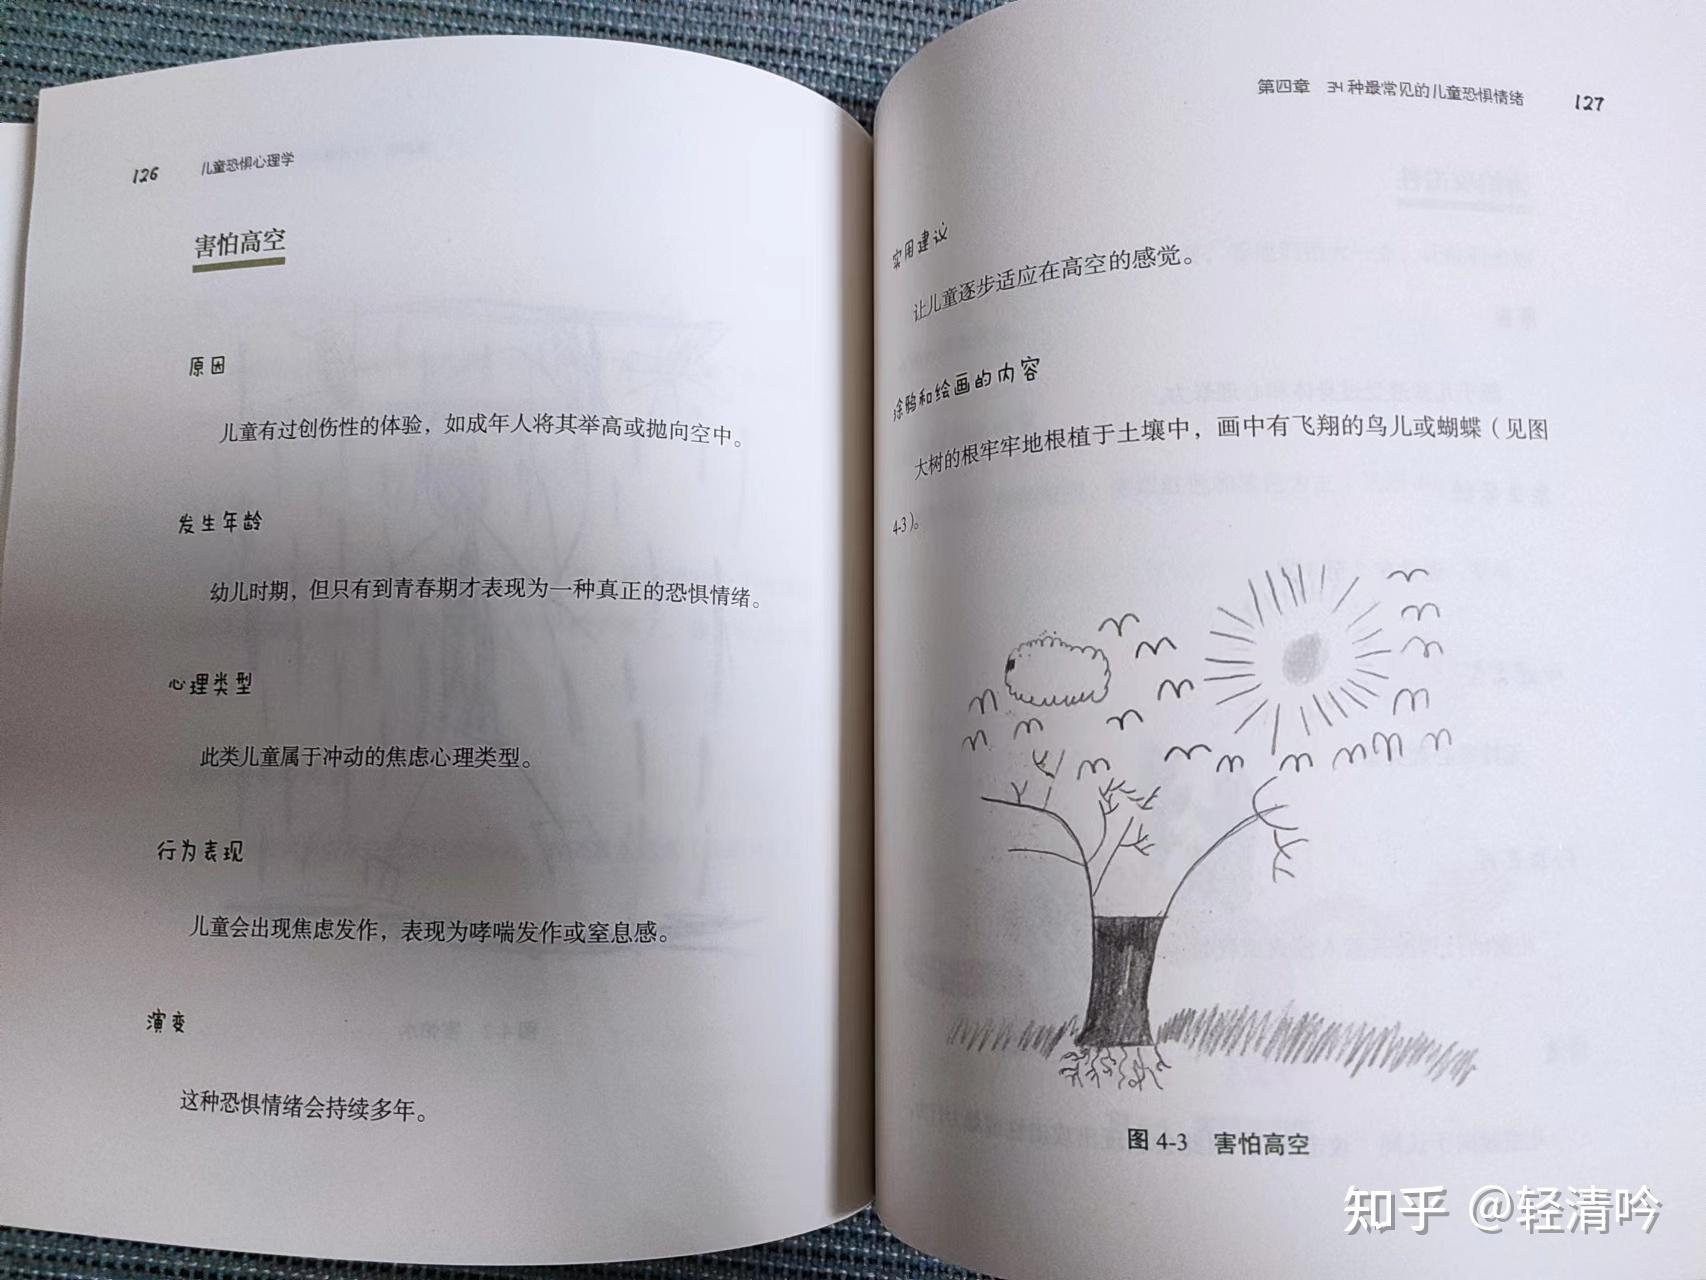 126 儿童恐惧心理学
害怕高空
原因
儿童有过创伤性的体验，如成年人将其举高或抛向空中。
发生年龄
幼儿时期，但只有到青春期才表现为一种真正的恐惧情绪。
心理类型
此类儿童属于冲动的焦虑心理类型。
行为表现
儿童会出现焦虑发作，表现为哮喘发作或窒息感。
演变
这种恐惧情绪会持续多年。
第四章 34种最常见的儿童恐惧情绪 127
实用建议
让儿童逐步适应在高空的感觉。
涂鸦和绘画的内容
大树的根牢牢地根植于土壤中，画中有飞翔的鸟儿或蝴蝶（见图
4-3）。
图 4-3 害怕高空
知乎 @轻清吟